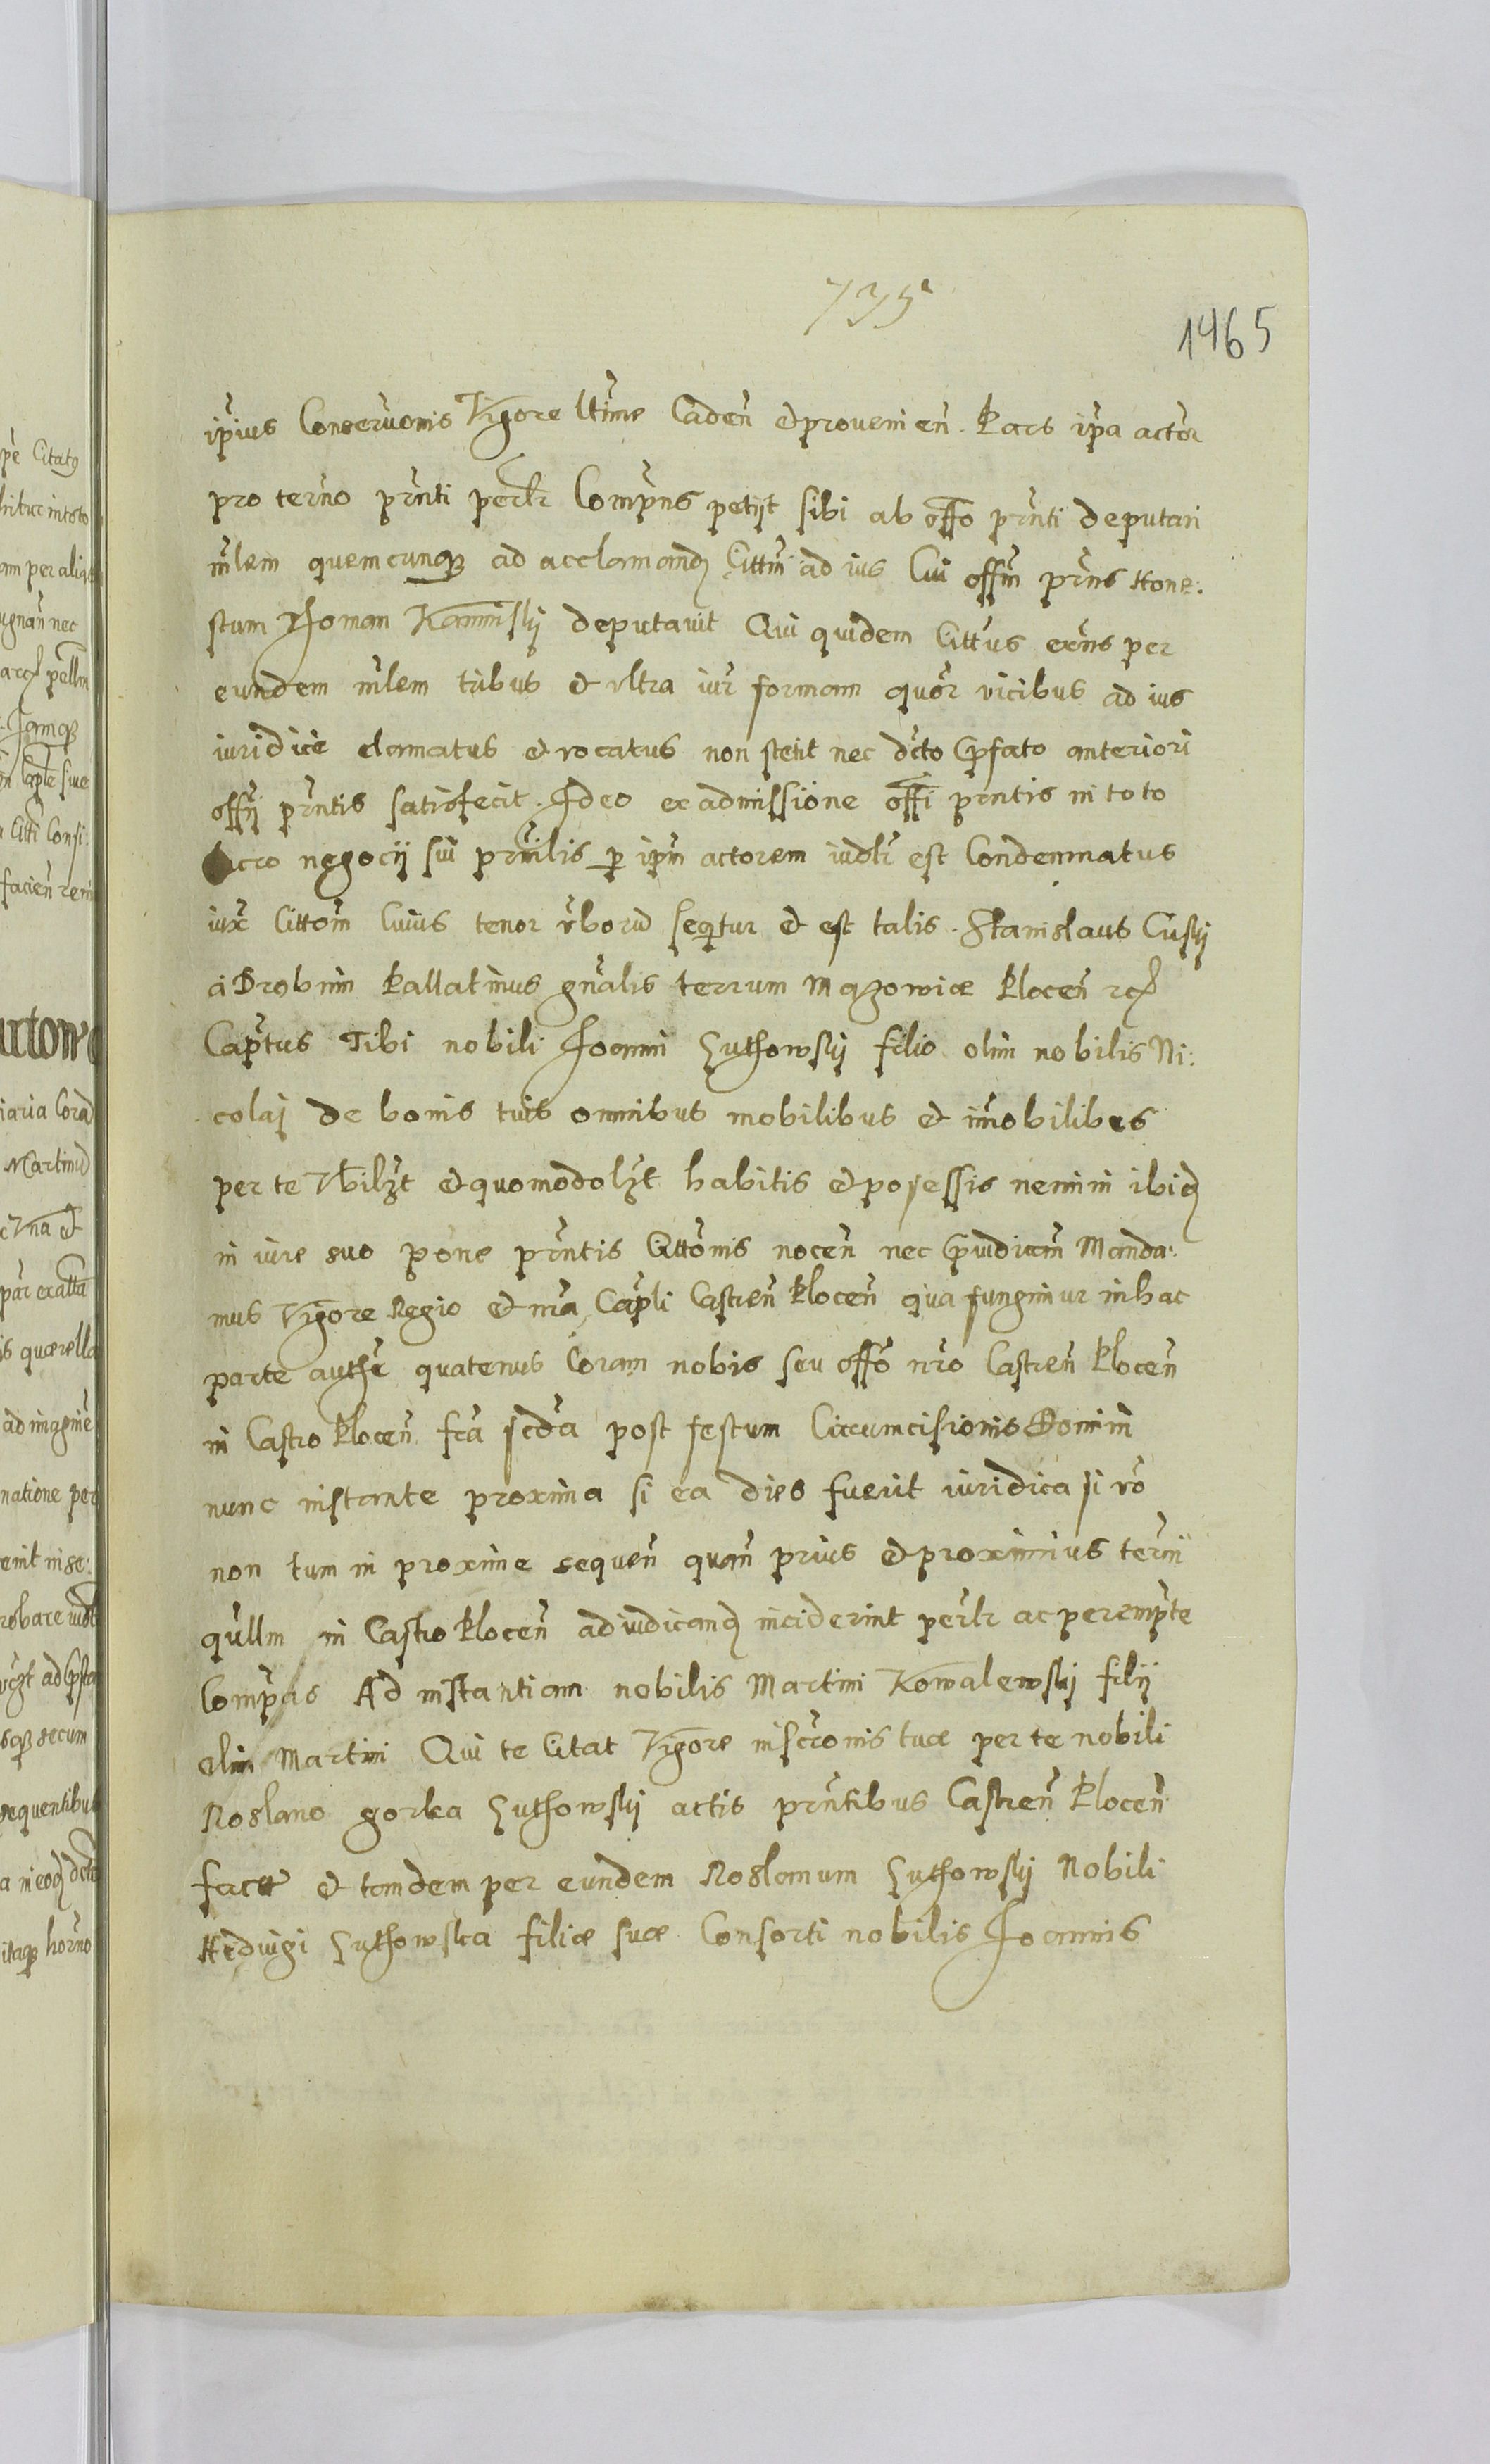 735
1465
ipius Conservonis Vigore ltime Caden et provenien. Pars ipa actor
pro termo prnti perlr Comprns petijt sibi ab offo prnti deputari
mlem quemcunq ad acclamand Cittm ad ius Cui offm prns Hone:
stum Thoman Kaminskij deputavit Qui quidem Cittus exns per
eundem mlem tribus et vltra iur formam quor vicibus ad ius
iuridice clamatus et vocatus non stetit nec dcto Prfato anteriori
offij prntis satisfecit. Ideo ex admissione offi prntis in toto
lucro negocij sui prncilis p ipm actorem iudlr est Condemnatus
iux Cittom Cuius tenor vborū seqtur et est talis. Stanislaus Cuskij
a Drobnin Pallatinus gnalis terrum Mazowiæ Plocen rcz
Captus Tibi nobili Joanni Luthowskij filio olim nobilis Ni:
colaj de bonis tuis omnibus mobilibus et imobilibus
per te Vbilzt et quomodolzt habitis et possessis nemini ibid
in iure suo pone prntis Cittonis nocen nec Priudicam Manda:
mus Vigore Regio et nra Capli Castren Plocen qua fungimur in hac
parte authe quatenus Coram nobis seu offo nro Castren Plocen
in Castro Plocen fra scda post festum Circumcisionis Domini
nunc instante proxima si ea dies fuerit iuridica si vo
non tum in proxime sequen quan prius et proximius termi
qullm in Castro Plocen adiudicand inciderint perlr ac perempte
Compras Ad instantiam nobilis Martini Kowalewskij filij
olim Martini Qui te Citat Vigore inscronis tuæ per te nobili
Roslano gorka Luthowskij actis prntibus Castren Plocen
factæ et tandem per eundem Roslanum Luthowskij Nobili
Hedvigi Luthowska filiæ suæ Consorti nobilis Joannis